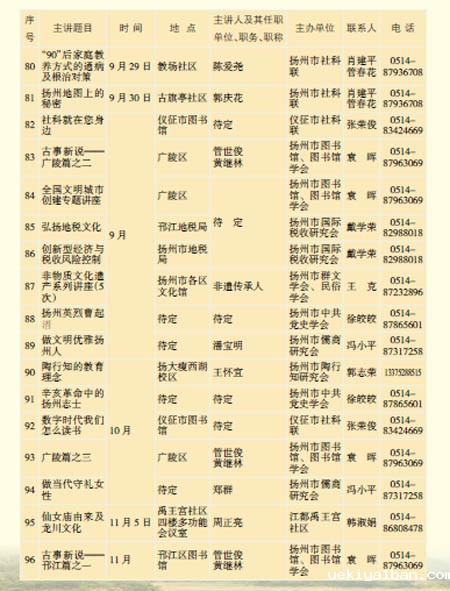 序号 主讲题目 时间 地点 主讲人及其任职单位、职务、职称 主办单位 联系人 电话
80 “90”后家庭教养方式的通病及根治对策 9月29日 教场社区 陈爱尧 扬州市社科联 肖建平 管春花 0514-87936708
81 扬州地图上的秘密 9月30日 古旗亭社区 郭庆花 扬州市社科联 肖建平 管春花 0514-87936708
82 社科就在您身边 9月 仪征市图书馆 待定 仪征市社科联 张荣俊 0514-83424669
83 古事新说——广陵篇之二 广陵区 管世俊 黄继林 扬州市图书馆、图书馆学会 袁晖 0514-87963069
84 全国文明城市创建专题讲座 广陵区 待定 扬州市图书馆、图书馆学会 袁晖 0514-87963069
85 弘扬地税文化 邗江地税局 扬州市国际税收研究会 戴学荣 0514-82988018
86 创新型经济与税收风险控制 扬州市地税局 扬州市国际税收研究会 戴学荣 0514-82988018
87 非物质文化遗产系列讲座(5次) 扬州市各区文化馆 非遗传承人 扬州市群文学会、民俗学会 王克 0514-87232896
88 扬州英烈曹起溍 待定 待定 扬州市中共党史学会 徐皎皎 0514-87865601
89 做文明优雅扬州人 待定 潘宝明 扬州市儒商研究会 冯小平 0514-87317258
90 陶行知的教育理念 10月 扬大瘦西湖校区 王怀宣 扬州市陶行知研究会 郭志荣 13375288515
91 辛亥革命中的扬州志士 待定 待定 扬州市中共党史学会 徐皎皎 0514-87865601
92 数字时代我们怎么读书 仪征市图书馆 待定 仪征市社科联 张荣俊 0514-83424669
93 广陵篇之三 广陵区 管世俊 黄继林 扬州市图书馆、图书馆学会 袁晖 0514-87963069
94 做当代守礼女性 待定 郑群 扬州市儒商研究会 冯小平 0514-87317258
95 仙女庙由来及龙川文化 11月5日 禹王宫社区四楼多功能会议室 周正亮 江都禹王宫社区 韩淑娟 0514-86808478
96 古事新说——邗江篇之一 11月 邗江区图书馆 管世俊 黄继林 扬州市图书馆、图书馆学会 袁晖 0514-87963069
yekiyaiban.com